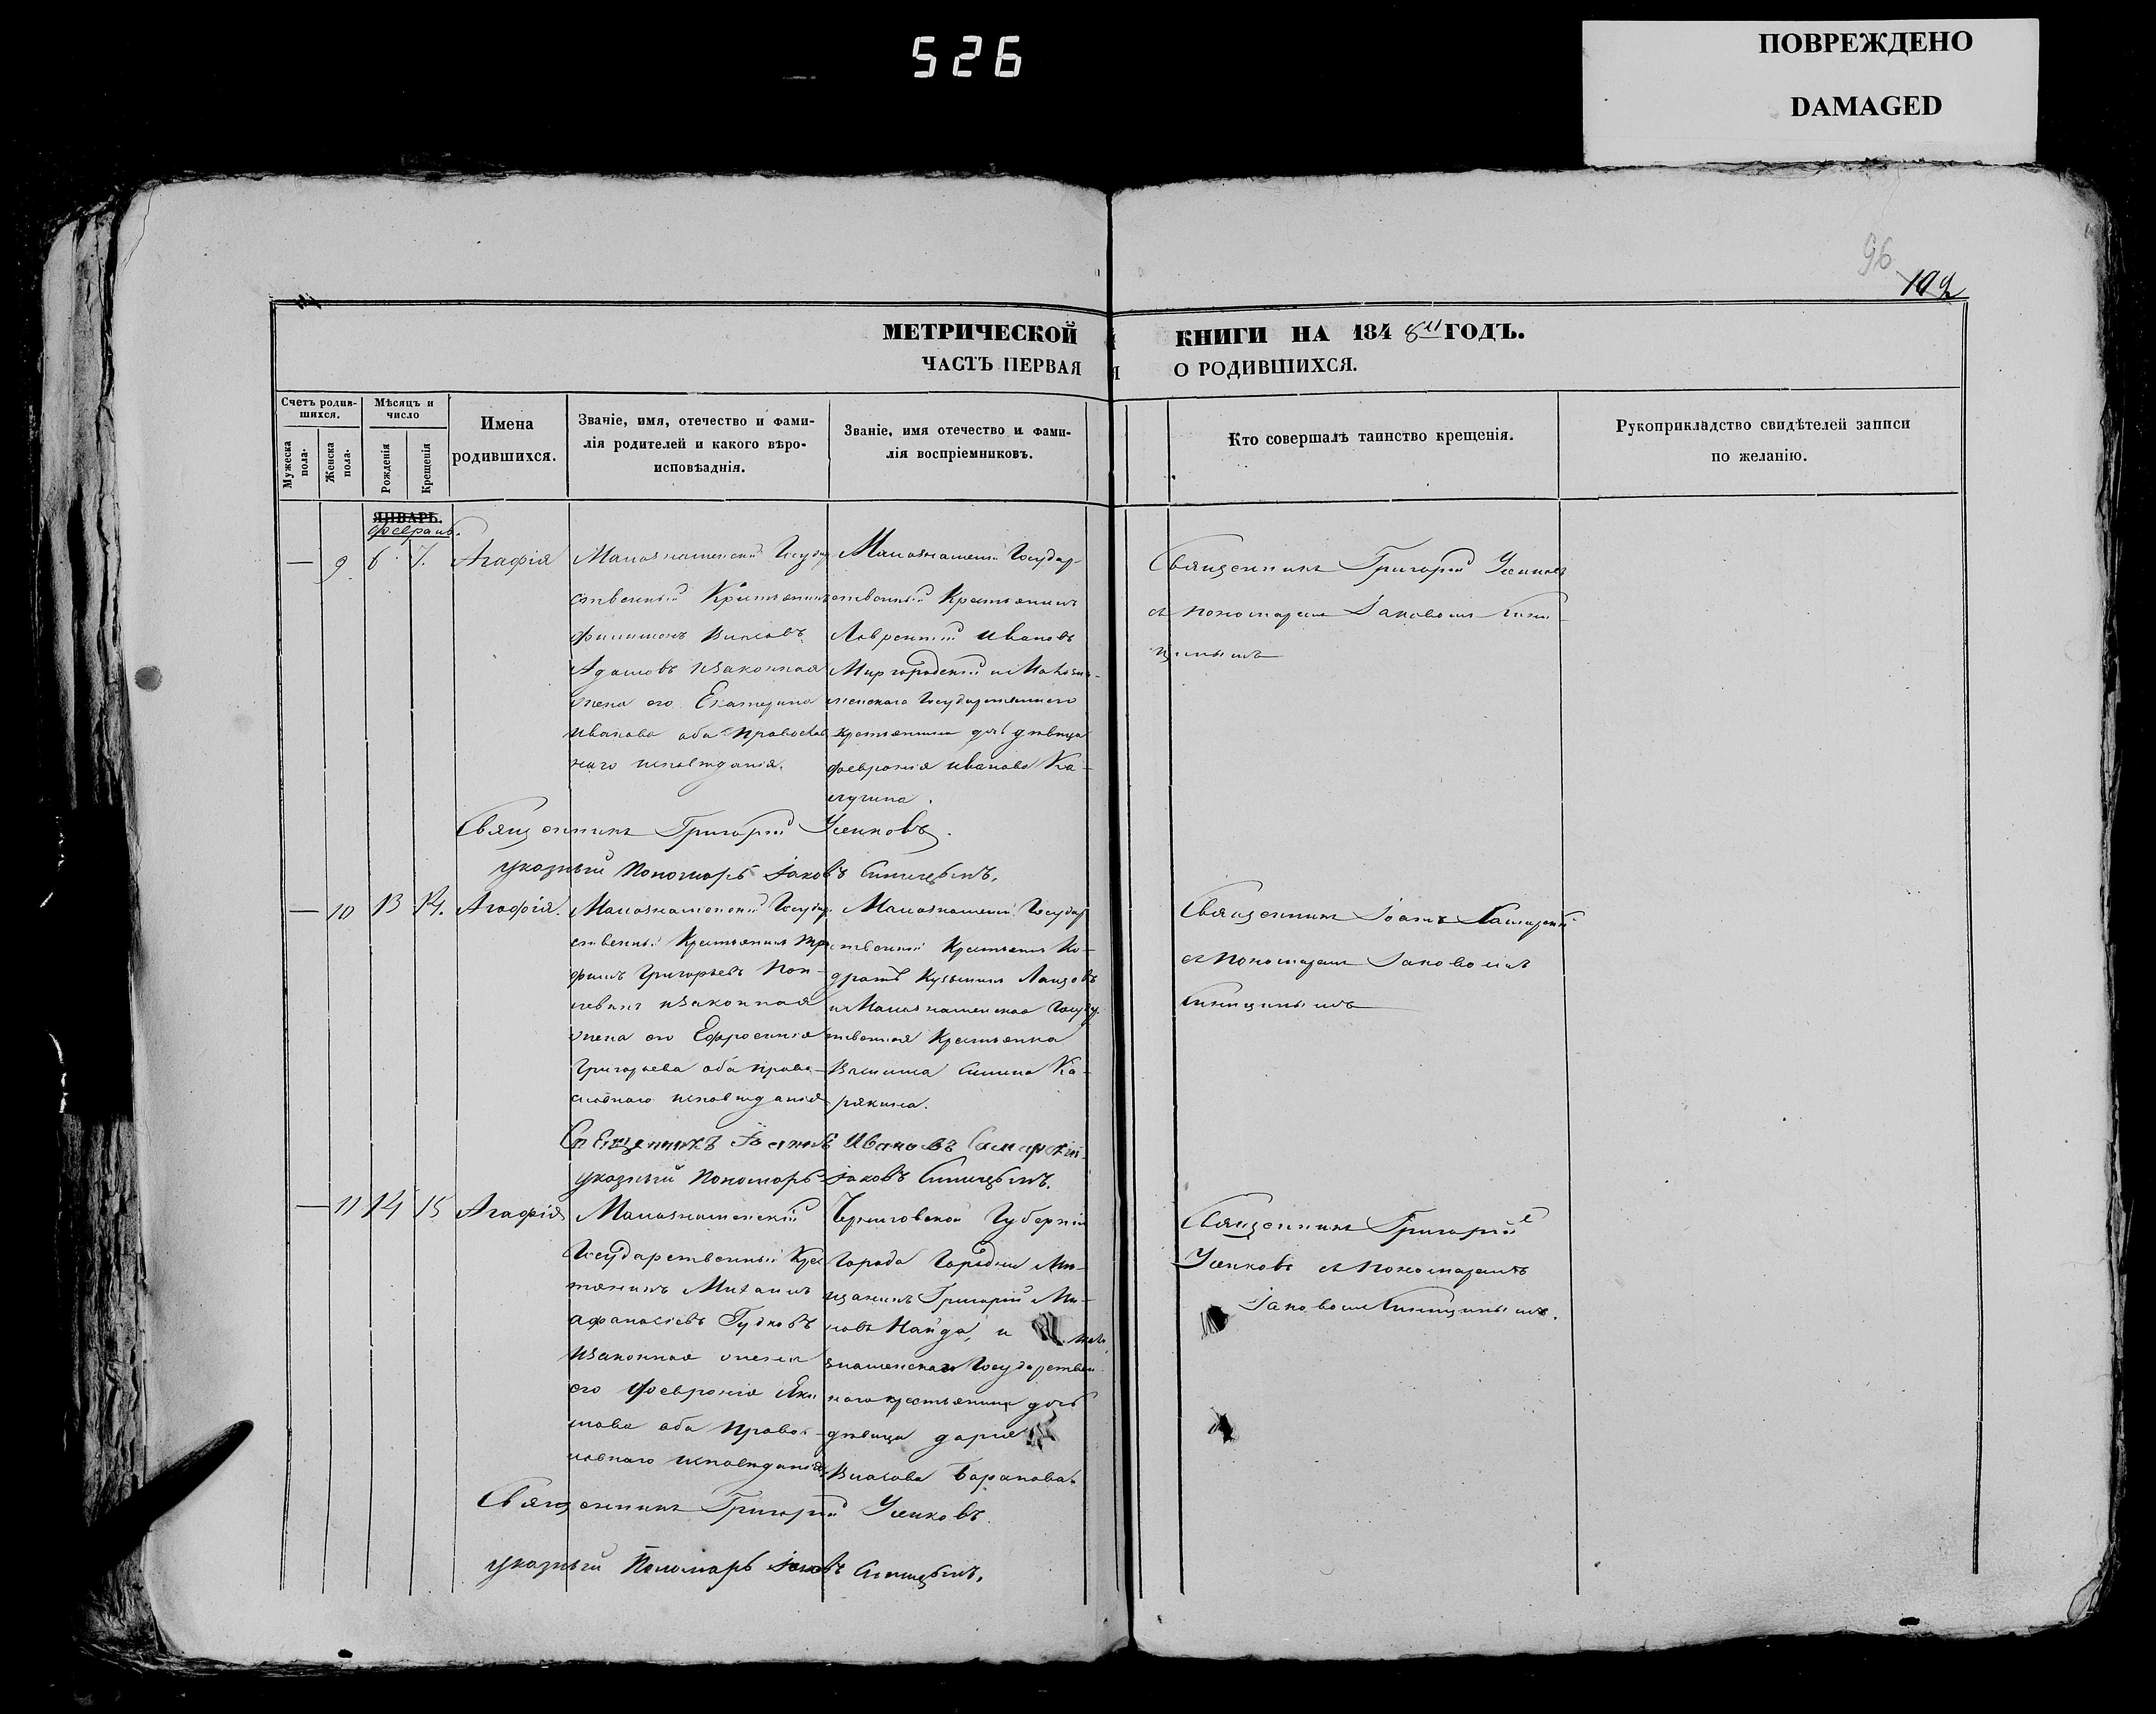 526
ПОВРЕЖДЕНО
DAMAGED
96
102
МЕТРИЧЕСКОЙ КНИГИ НА 1848й ГОДЪ.
ЧАСТЬ ПЕРВАЯ О РОДИВШИХСЯ.
Счетъ родив-
шихся.
Мужеска
пола.
Женска
пола.
Мѣсяцъ и
число
Рожденія
Крещенія
Имена
родившихся.
Званіе, имя, отечество и фами-
лія родителей и какого вѣро-
исповѣаднія.
Званіе, имя отечество и фами-
лія воспріемниковъ.
Кто совершалъ таинство крещенія.
Рукоприкладство свидѣтелей записи
по желанію.
ЯНВАРЬ.
Февраль.
— 9 6. 7. Агафія
Малознаменскій Государ
ственный Крестьянинъ
Филимонъ Власовъ
Адамовъ изаконная
жена его Екатерина
Иванова оба Православ
наго исповѣданія.
Малознаменскій Государ-
ственный Крестьянинъ
Лаврентій Ивановъ
Миргородскій и Малозна-
менскаго Государственнаго
Крестьянина дочь дѣвица
Февронія Иванова Ка-
лугина.
Священникъ Григорій
съ пономаремъ Іаковомъ Сини-
цынымъ
Священникъ Григорій
указный Пономарь Іаковъ Синицынъ.
— 10 13 14. Агафія.
Малознаменскій Государ
ственный Крестьянинъ Тро
фимъ Григорьевъ
изаконная
жена его Ефросинія
Григорьева оба право-
славнаго исповѣданія
Малознаменскій Государ
ственный Крестьянинъ Ко-
дратъ Кузьминъ
и Малознаменская Госуд.
ственная Крестьянка
Василиса Ка-
рякина.
Священникъ Іоаннъ Самарскій
съ Пономаремъ Іаковомъ
Синицынымъ
Священникъ Іоаннъ Ивановъ Самарскій.
указный Пономарь Іаковъ Синицынъ.
— 11 14 15 Агафія
Малознаменскій
Государственный Крес
тьянинъ Михаилъ
Афанасіевъ Гудковъ
изаконная жена
его Февронія Яки
мова оба Правос-
лавнаго исповѣданія
Черниговской Губерніи
Города Городни Мѣ-
щанинъ Григорій
Найда, и Мало
знаменскаго Государствен
наго крестьянина дочь
дѣвица Дарья
Власова Баранова.
Священникъ Григорій
съ Пономаремъ
Іаковомъ Синицынымъ.
Священникъ Григорій
указный Пономарь Іаковъ Синицынъ.